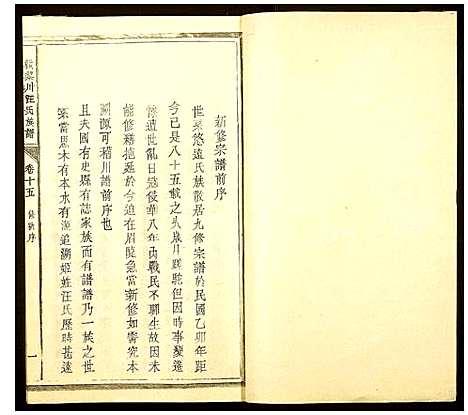 新修宗譜前序
世系悠遠氏族散居九修宗譜於民國乙卯年距
今已是八十五載之久歲月蹉跎但因時事變遷
慘遭世亂日寇侵華八年內戰民不聊生故因未
能修譜拖延於今迫在眉睫急當新修如需究本
溯源可稽川譜前序也
且夫國有史縣有誌家族而有譜譜乃一族之世
系當思木有本水有源追溯姬姓汪氏歷時甚遠
川汪氏族譜
卷十五
序
一